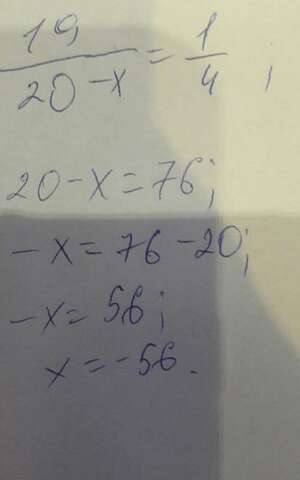 19/20-x = 1/4 ;
20-x=76;
-x=76-20;
-x=56;
x=-56.